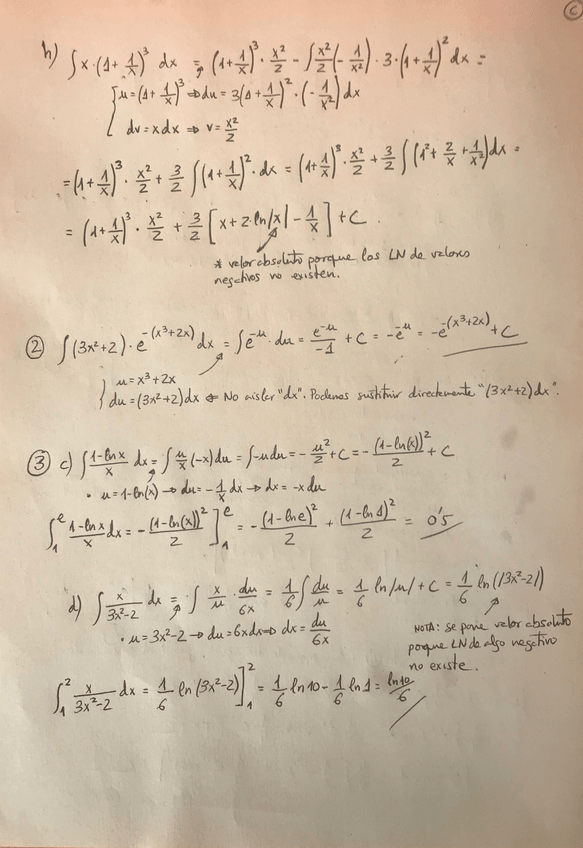 C
h) ∫x·(1+1/x)³ dx = (1+1/x)³·x²/2 - ∫x²/2(-1/x²)·3·(1+1/x)² dx =
u=(1+1/x)³ ⇒ du=3(1+1/x)²·(-1/x²)dx
dv=xdx ⇒ v=x²/2
=(1+1/x)³·x²/2+3/2∫(1+1/x)²·dx=(1+1/x)³·x²/2+3/2∫(1²+2/x+1/x²)dx=
=(1+1/x)³·x²/2+3/2[x+2·ln|x|-1/x]+C.
* valor absoluto porque los LN de valores
negativos no existen.
② ∫(3x²+2)·e^-(x³+2x) dx=∫e^-u·du=e^-u/-1+C=-e^-u=-e^-(x³+2x)+C
u=x³+2x
du=(3x²+2)dx ⇐ No aislar "dx". Podemos sustituir directamente "(3x²+2)dx".
③ c) ∫1-lnx/x dx=∫u/x(-x)du=∫-udu=-u²/2+C=-(1-ln(x))²/2+C
• u=1-ln(x)→du=-1/x dx→dx=-xdu
∫₁^e 1-lnx/x dx=-(1-ln(x))²/2]₁^e=-(1-lne)²/2+(1-ln1)²/2=0'5
d) ∫x/3x²-2 dx=∫x/u·du/6x=1/6∫du/u=1/6 ln|u|+C=1/6 ln(|3x²-2|)
• u=3x²-2→du=6xdx→dx=du/6x
NOTA: se pone valor absoluto
porque LN de algo negativo
no existe.
∫₁² x/3x²-2 dx=1/6 ln(3x²-2)]₁²=1/6 ln10-1/6 ln1=ln10/6